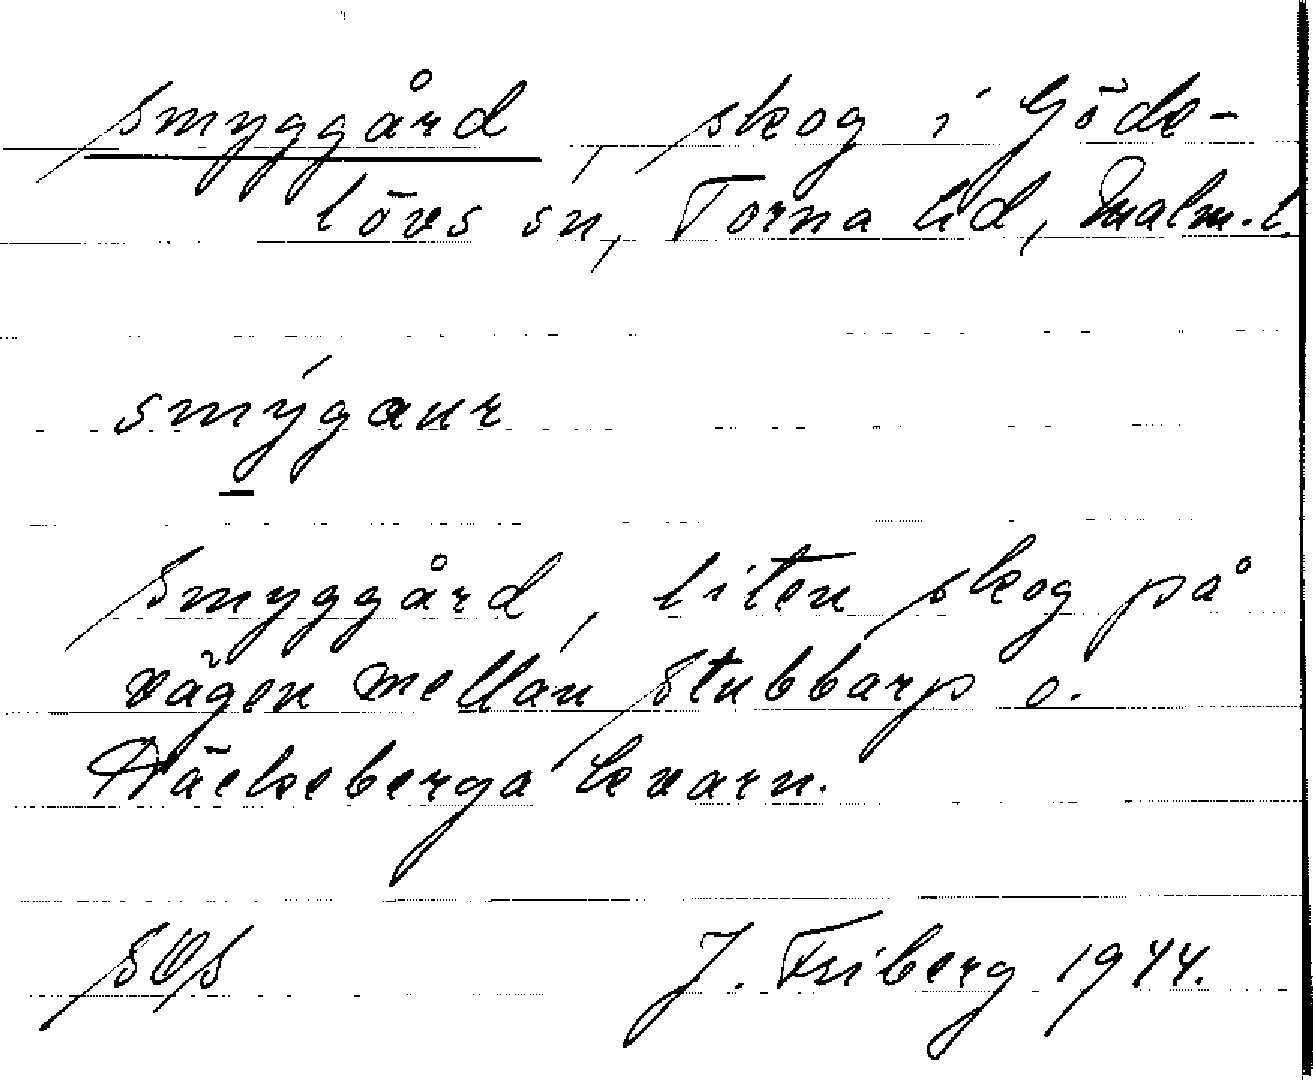 Smyggård, skog i Göde-
lövs sn, Torna hd, Malm. l.
smýgaur
Smyggård, liten skog på
vägen mellan Stubbarp o.
Häckeberga kvarn.
SOS J. Friberg 1944.